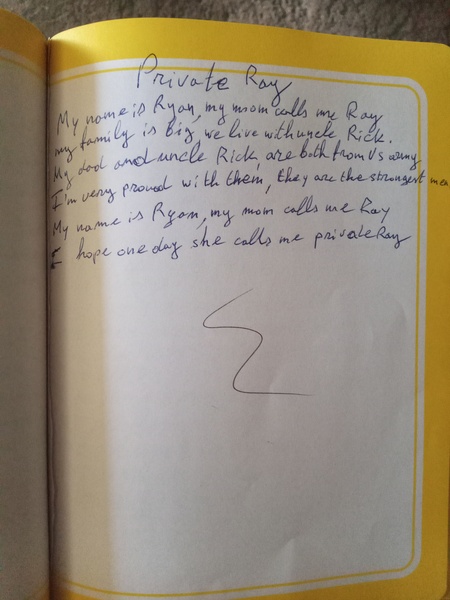 Private Ray
My name is Ryan, my mom calls me Ray
my family is Big, we live with uncle Rick.
My dad and uncle Rick, are both from Us army
I'm very proud with them, they are the strongest men
My name is Ryan, my mom calls me Ray
I hope one day she calls me private Ray